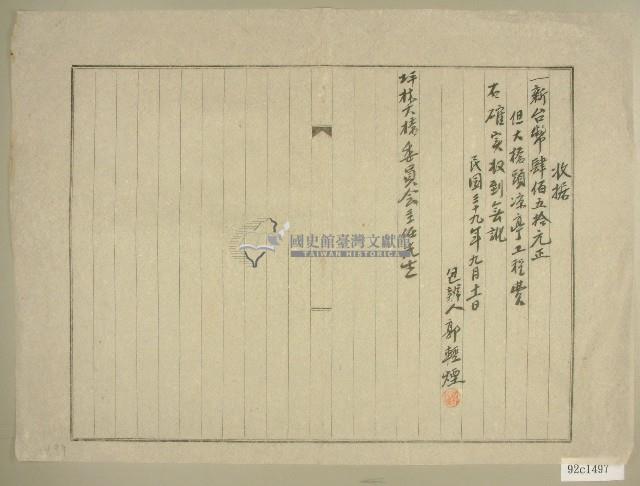 收据
一新台幣肆佰五拾元正
但大橋頭凉亭工程費
右確实收到無訛
民国三十九年九月十一日
包辦人郭輕煙
坪林大橋委員会主任先生
國史館臺灣文獻館
TAIWAN HISTORICA
92c1497